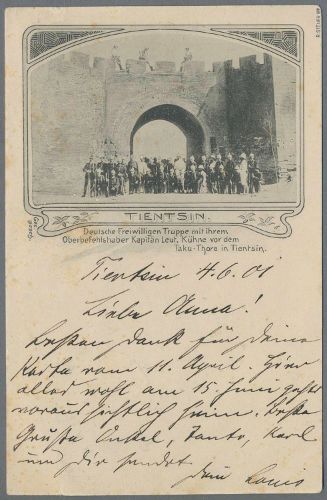 TIENTSIN.
Deutsche Freiwilligen Truppe mit ihrem
Oberbefehlshaber Kapitän Leut. Kühne vor dem
Taku-Thore in Tientsin.
Tientsin 4.6.01
Liebe Anna!
Besten Dank für Deine
Karte vom 11. April. Hier
alles wohl am 15. Juni geht's
voraussichtlich heim. Beste
Grüße Onkel, Tante, Karl
und Dir sendet
Dein